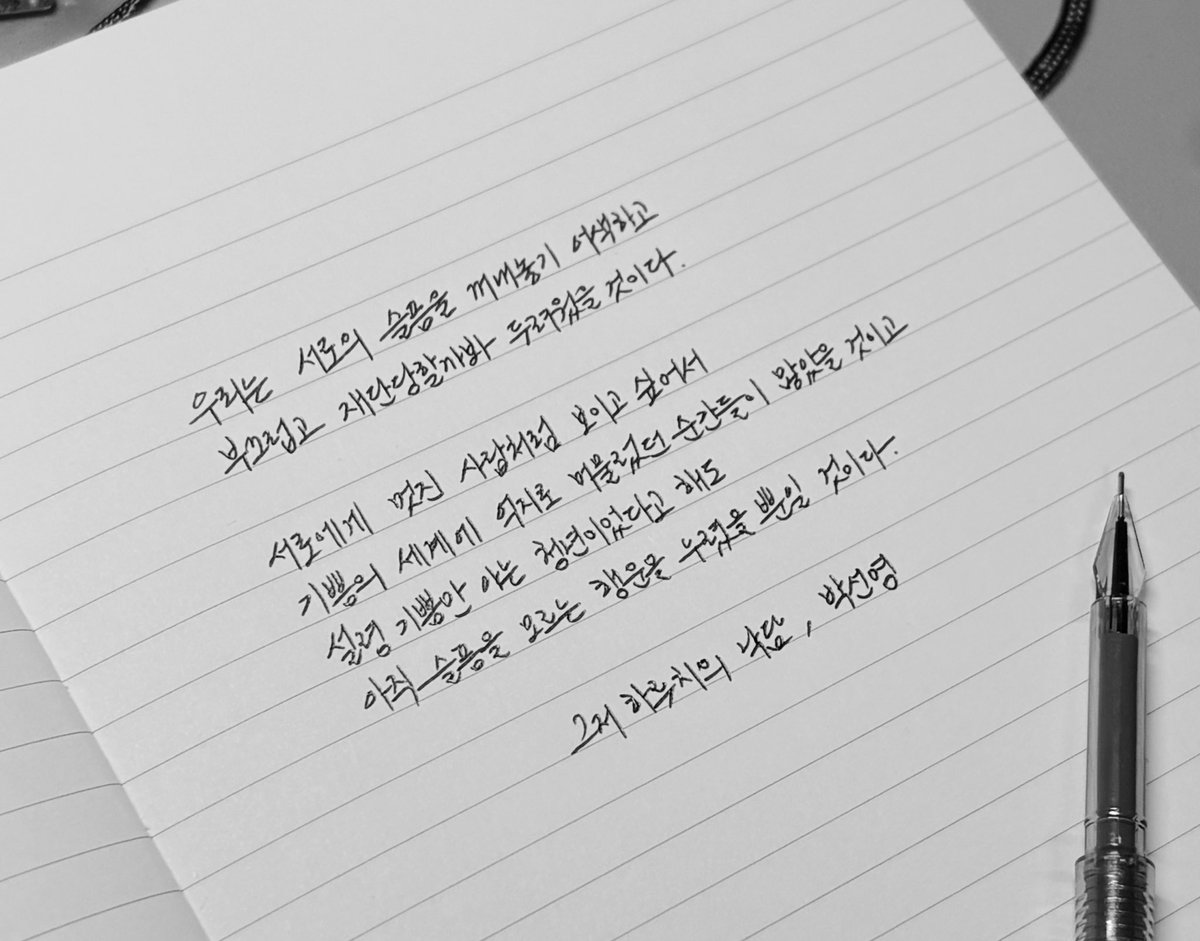 우리는 서로의 슬픔을 꺼내놓기 어색하고
부끄럽고 재단당할까봐 두려웠을 것이다.
서로에게 멋진 사람처럼 보이고 싶어서
기쁨의 세계에 억지로 머물렀던 순간들이 많았을 것이고
설령 기쁨만 아는 청년이었다고 해도
아직 슬픔을 모르는 행운을 누렸을 뿐일 것이다.
그저 하루치의 낙담, 박선영